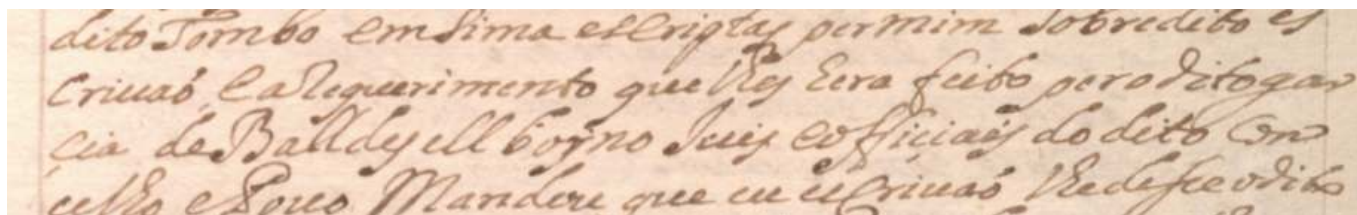 dito Tombo em sima escriptas per mim sobredito es
criuaõ e a Requerimento que lhes hera feito pero dito gar
cia de Balldes ell boyno Juis e officiais do dito Con
celho e Pouo Mandou que eu escriuaõ lhe desse o dito